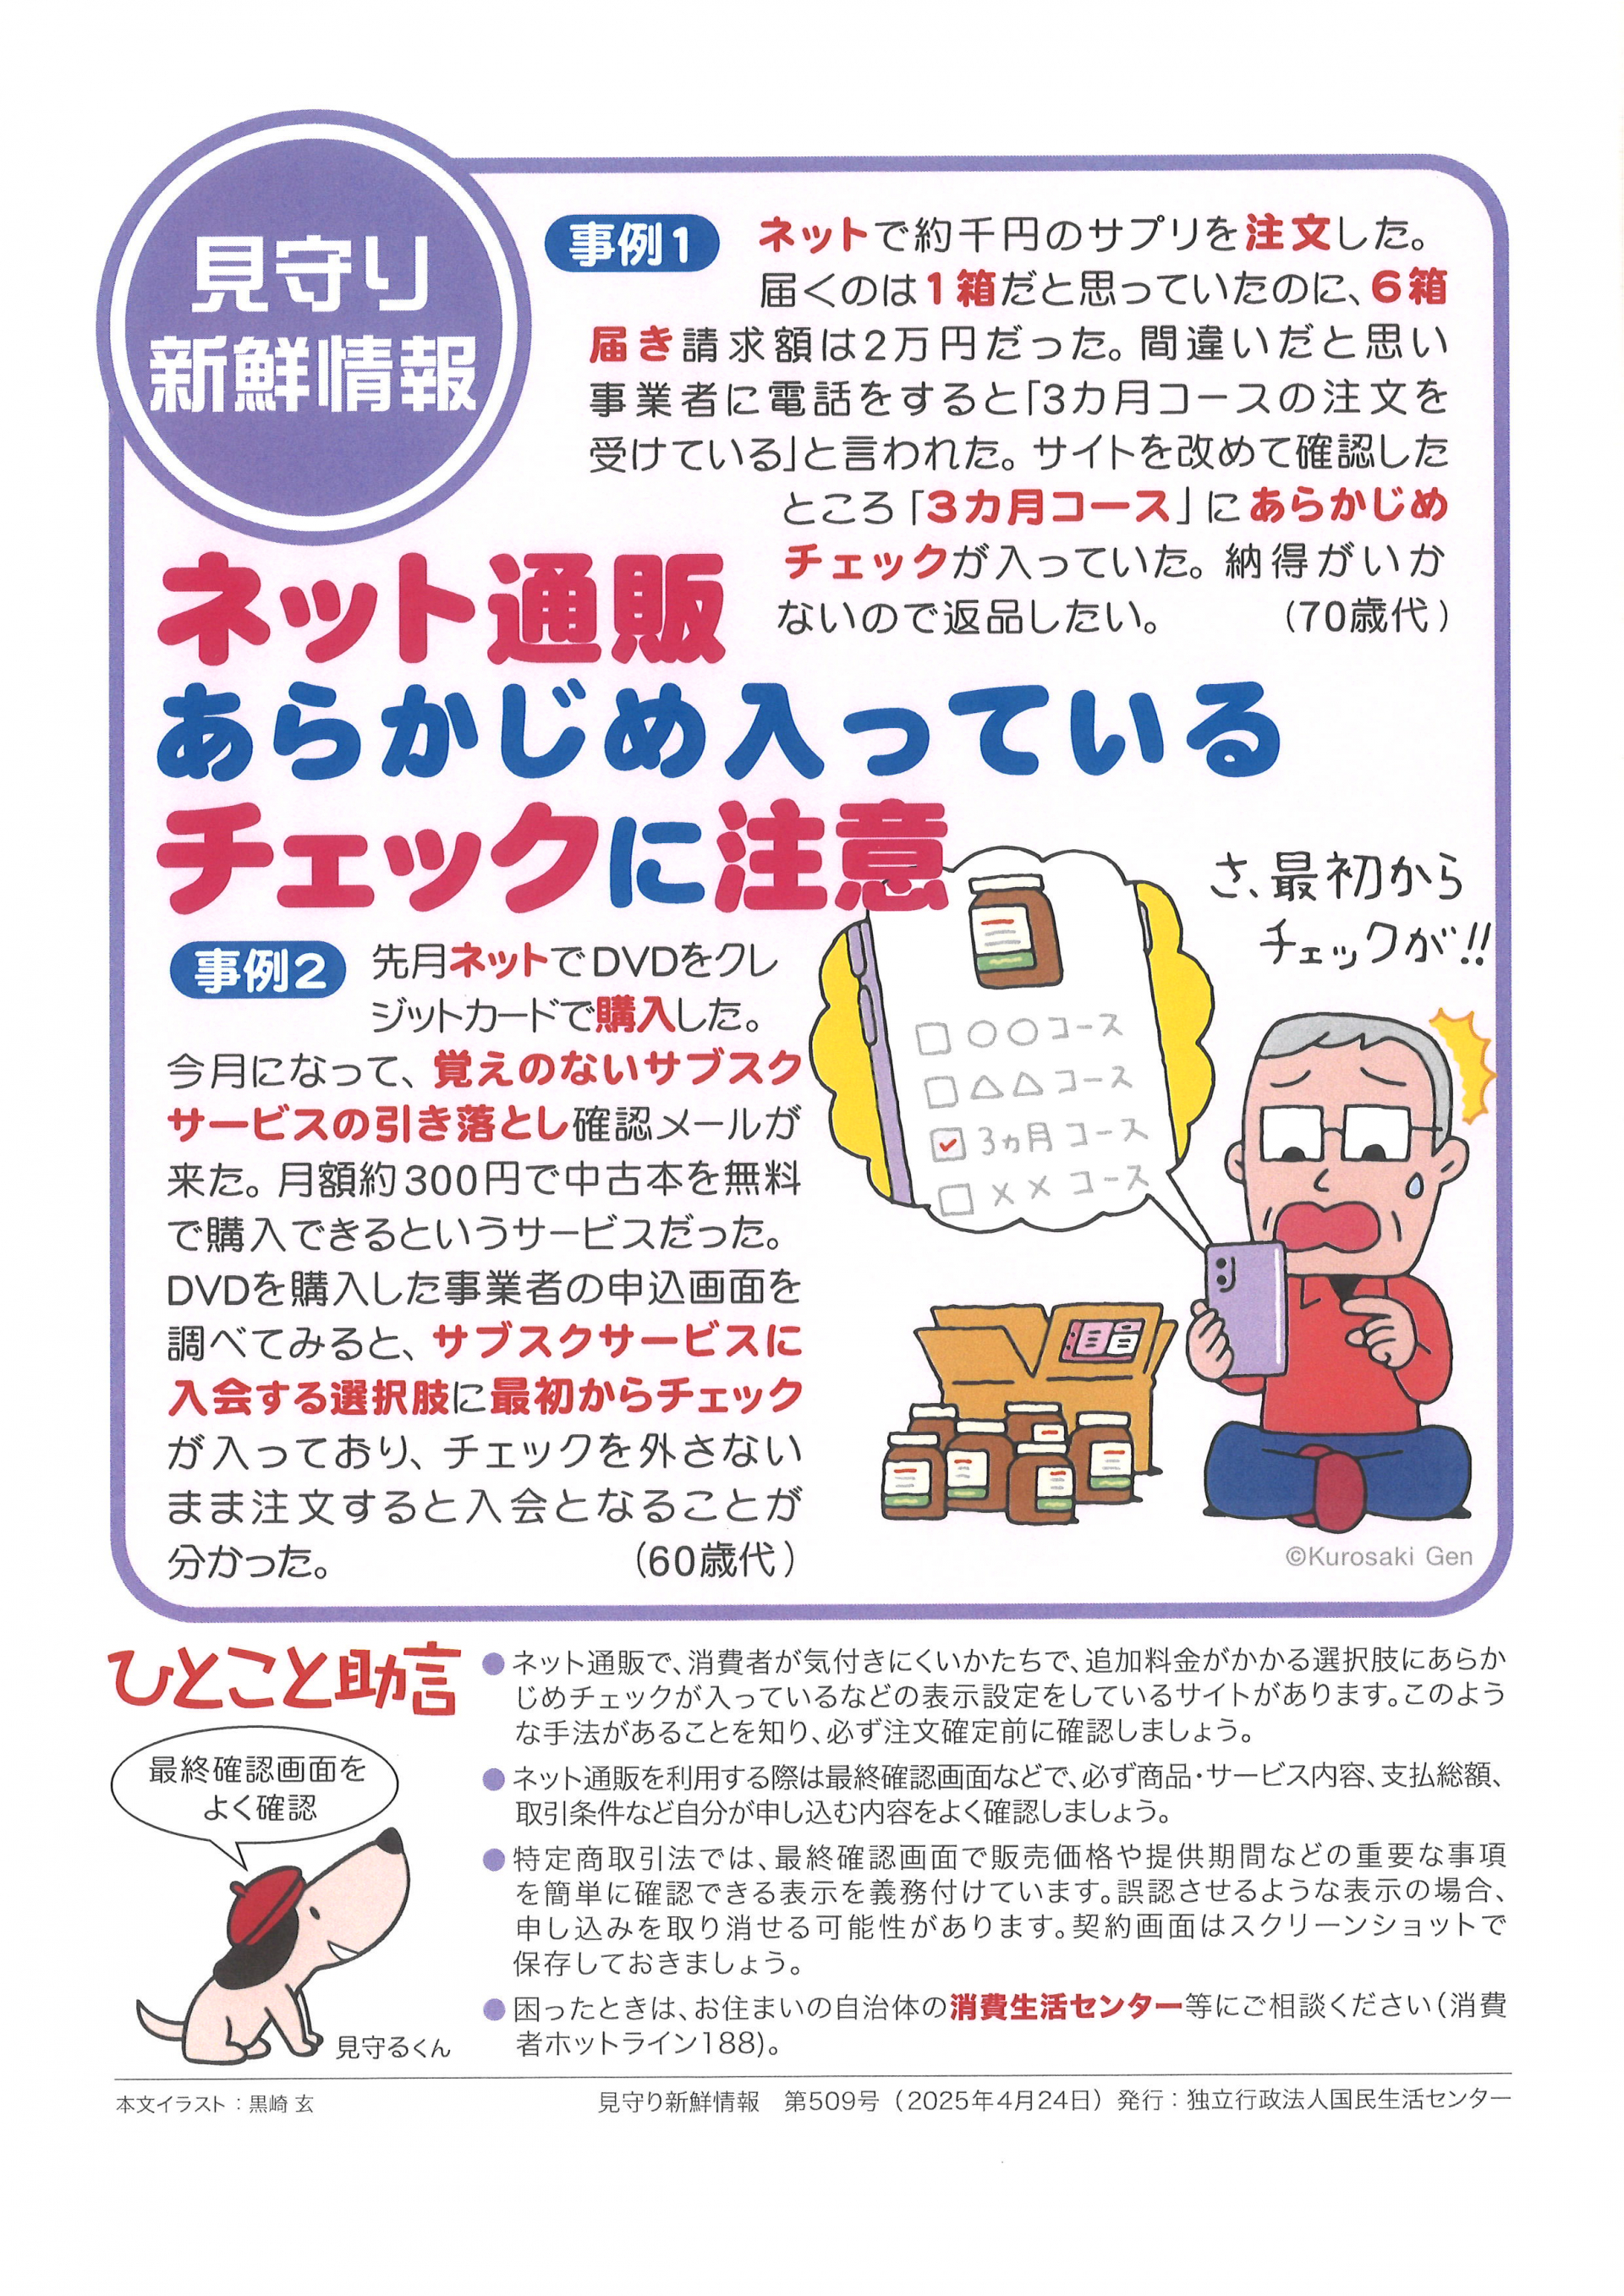 見守り
新鮮情報
事例1
ネットで約千円のサプリを注文した。
届くのは1箱だと思っていたのに、6箱
届き請求額は2万円だった。間違いだと思い
事業者に電話をすると「3カ月コースの注文を
受けている」と言われた。サイトを改めて確認した
ところ「3カ月コース」にあらかじめ
チェックが入っていた。納得がいか
ないので返品したい。 (70歳代)
ネット通販
あらかじめ入っている
チェックに注意
事例2
先月ネットでDVDをクレ
ジットカードで購入した。
今月になって、覚えのないサブスク
サービスの引き落とし確認メールが
来た。月額約300円で中古本を無料
で購入できるというサービスだった。
DVDを購入した事業者の申込画面を
調べてみると、サブスクサービスに
入会する選択肢に最初からチェック
が入っており、チェックを外さない
まま注文すると入会となることが
分かった。 (60歳代)
さ、最初から
チェックが!!
○○コース
△△コース
3ヵ月コース
××コース
©Kurosaki Gen
ひとこと助言
最終確認画面を
よく確認
見守るくん
●ネット通販で、消費者が気付きにくいかたちで、追加料金がかかる選択肢にあらか
じめチェックが入っているなどの表示設定をしているサイトがあります。このよう
な手法があることを知り、必ず注文確定前に確認しましょう。
●ネット通販を利用する際は最終確認画面などで、必ず商品・サービス内容、支払総額、
取引条件など自分が申し込む内容をよく確認しましょう。
●特定商取引法では、最終確認画面で販売価格や提供期間などの重要な事項
を簡単に確認できる表示を義務付けています。誤認させるような表示の場合、
申し込みを取り消せる可能性があります。契約画面はスクリーンショットで
保存しておきましょう。
●困ったときは、お住まいの自治体の消費生活センター等にご相談ください(消費
者ホットライン188)。
本文イラスト：黒崎 玄
見守り新鮮情報 第509号(2025年4月24日)発行：独立行政法人国民生活センター